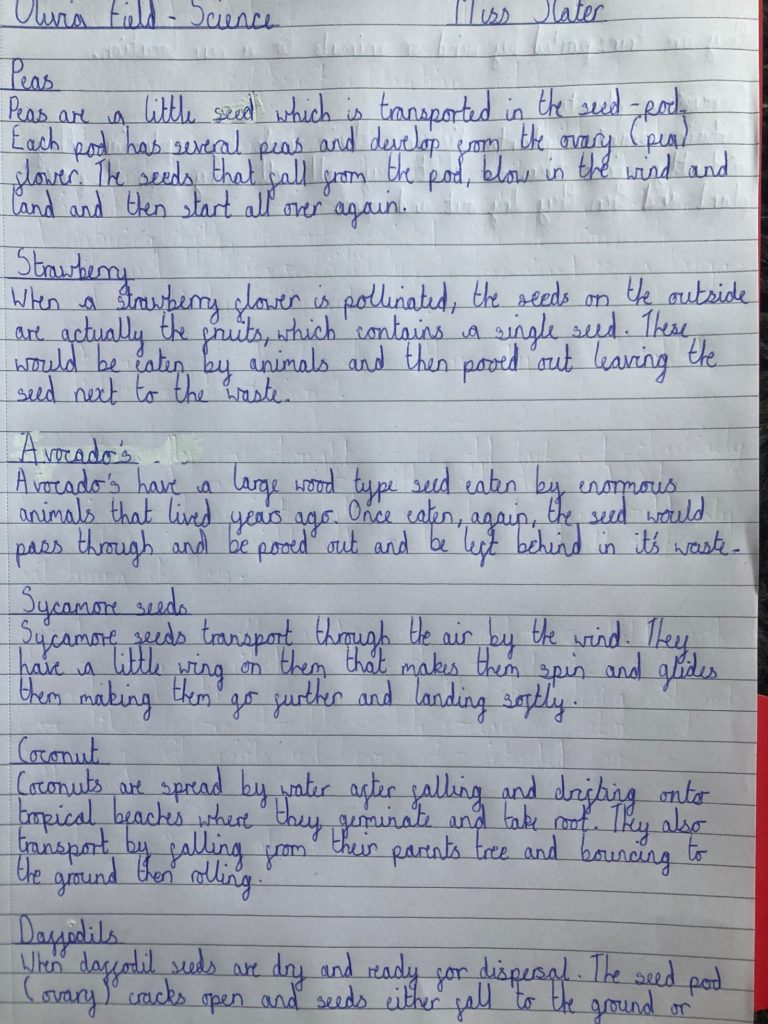 Olivia Field - Science Miss Slater
Peas
Peas are a little seed which is transported in the seed-pod.
Each pod has several peas and develop from the ovary (pea)
flower. The seeds that fall from the pod, blow in the wind and
land and then start all over again.
Strawberry
When a strawberry flower is pollinated, the seeds on the outside
are actually the fruits, which contains a single seed. These
would be eaten by animals and then pooed out leaving the
seed next to the waste.
Avocado's
Avocado's have a large wood type seed eaten by enormous
animals that lived years ago. Once eaten, again, the seed would
pass through and be pooed out and be left behind in it's waste-
Sycamore seeds
Sycamore seeds transport through the air by the wind. They
have a little wing on them that makes them spin and glides
them making them go further and landing softly.
Coconut
Coconuts are spread by water after falling and drifting onto
tropical beaches where they germinate and take root. They also
transport by falling from their parents tree and bouncing to
the ground then rolling.
Daffodils
When daffodil seeds are dry and ready for dispersal. The seed pod
(ovary) cracks open and seeds either fall to the ground or